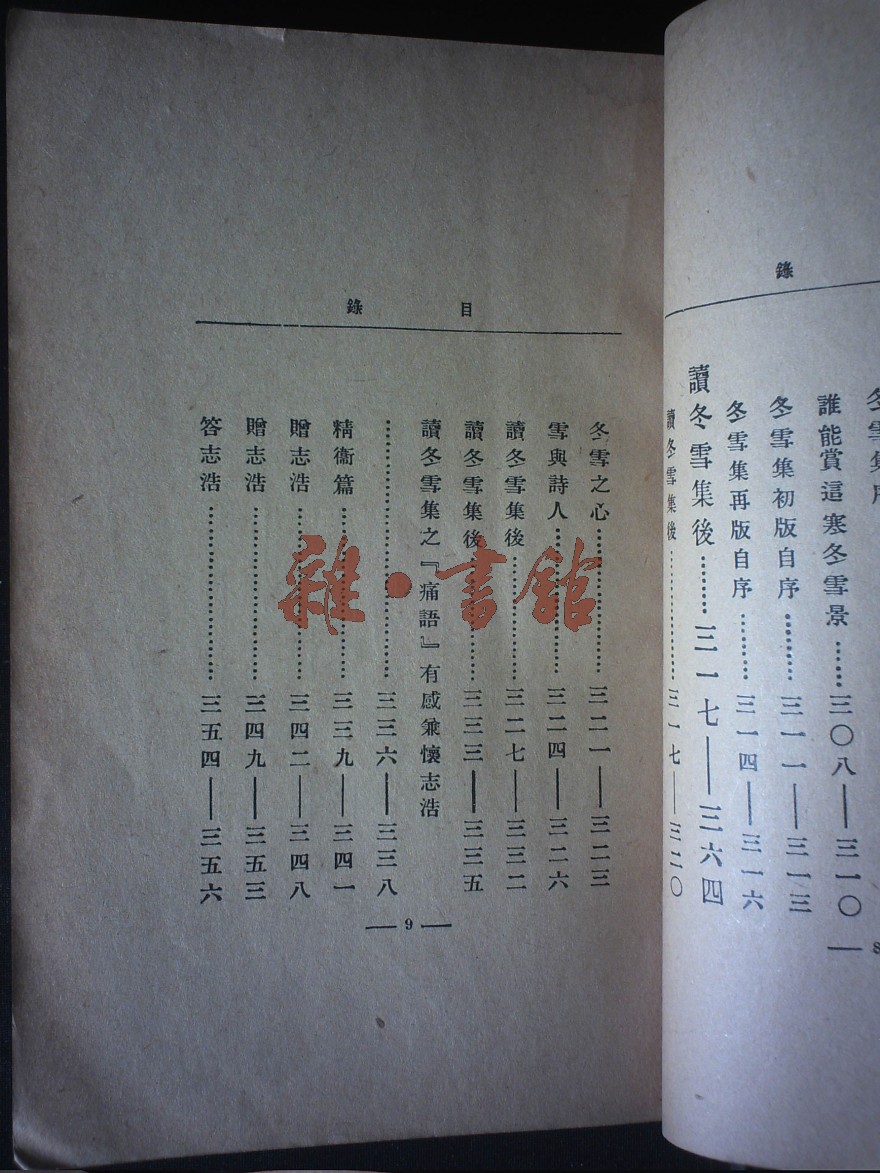 錄
冬雪集序
誰能賞這寒冬雪景……三〇八——三一〇
冬雪集初版自序……三一一——三一三
冬雪集再版自序……三一四——三一六
讀冬雪集後……三一七——三六四
讀冬雪集後……三一七——三二〇
目錄
冬雪之心……三二一——三二三
雪與詩人……三二四——三二六
讀冬雪集後……三二七——三三二
讀冬雪集後……三三三——三三五
讀冬雪集之『痛語』有感兼懷志浩
……三三六——三三八
精衞篇……三三九——三四一
贈志浩……三四二——三四八
贈志浩……三四九——三五三
答志浩……三五四——三五六
— 9 —
雜·書館